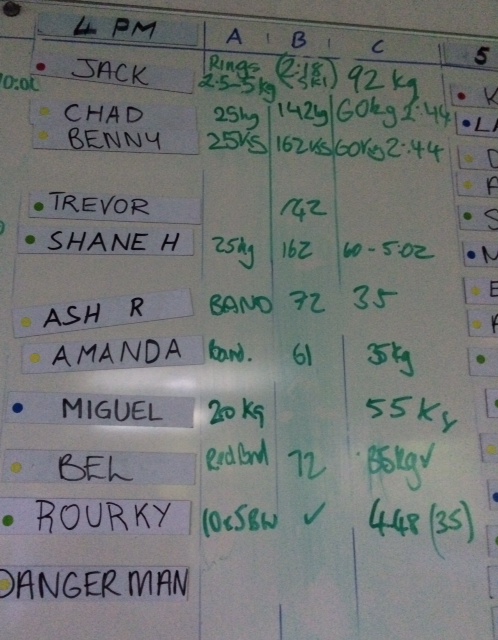 4 PM A B C 5
JACK Rings 2.5-5kg (2:18 SKI) 92 kg
CHAD 25kg 142kg 60kg 2:44
BENNY 25KS 162KS 60Kg 2:44
TREVOR 142
SHANE H 25kg 162 60-5:02
ASH R BAND 72 35
AMANDA Band. 61 35kg
MIGUEL 20 Kg 55 Kg
BEL Red Band 72 35kg√
ROURKY 10x5BW ✓ 4.48 (35)
DANGERMAN